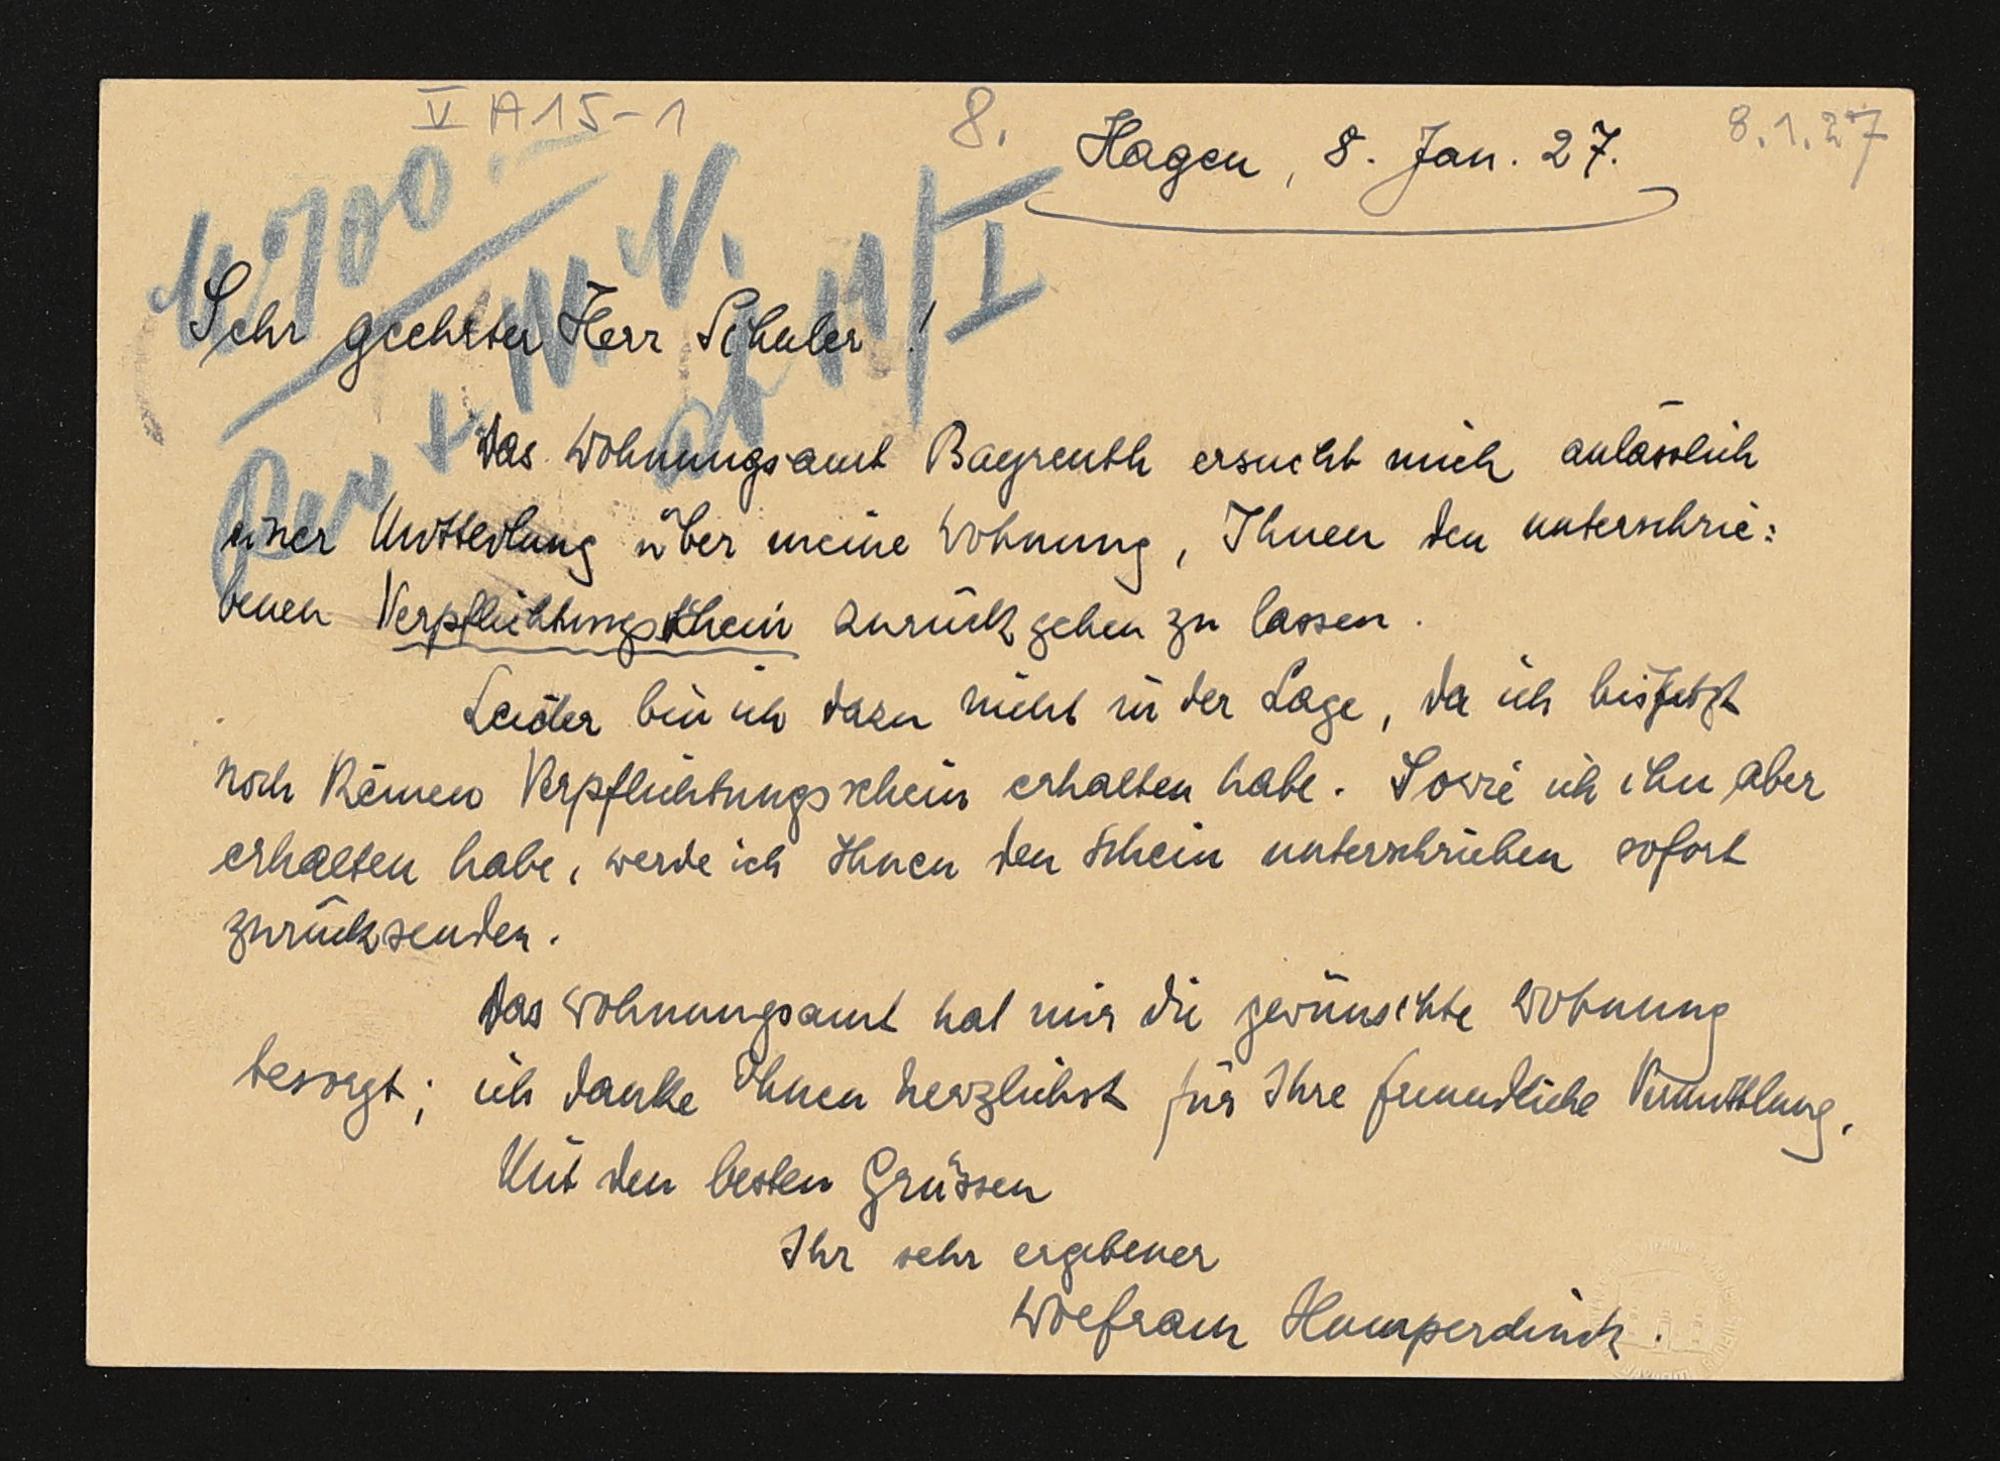 V A 15-1
8.
Hagen, 8. Jan. 27.
8.1.27
Sehr geehrter Herr Schuler!
Das Wohnungsamt Bayreuth ersucht mich anlässlich
einer Mitteilung über meine Wohnung, Ihnen den unterschrie:
benen Verpflichtungsschein zurückgehen zu lassen.
Leider bin ich dazu nicht in der Lage, da ich bisjetzt
noch keinen Verpflichtungsschein erhalten habe. Sowie ich ihn aber
erhalten habe, werde ich Ihnen den Schein unterschrieben sofort
zurücksenden.
Das Wohnungsamt hat mir die gewünschte Wohnung
besorgt; ich danke Ihnen herzlichst für Ihre freundliche Vermittlung.
Mit den besten Grüssen
Ihr sehr ergebener
Wolfram Humperdinck.